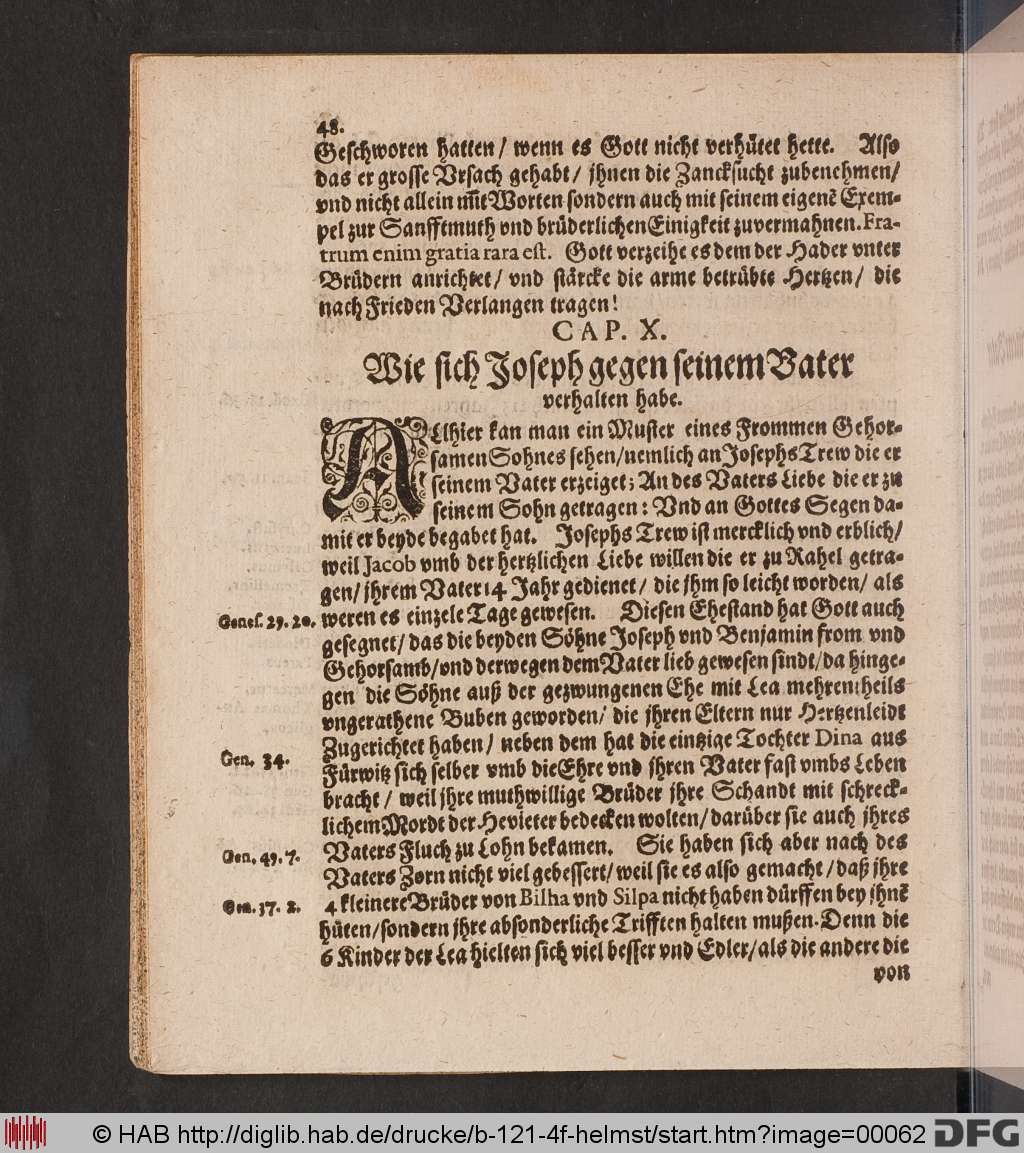 48.
Geschworen hatten/ wenn es Gott nicht verhütet hette. Also
das er grosse Vrsach gehabt/ jhnen die Zancksucht zubenehmen/
vnd nicht allein mit Worten sondern auch mit seinem eigenẽ Exem-
pel zur Sanfftmuth vnd brüderlichen Einigkeit zuvermahnen. Fra-
trum enim gratia rara est. Gott verzeihe es dem der Hader vnter
Brüdern anrichtet/ vnd stärcke die arme betrübte Hertzen/ die
nach Frieden Verlangen tragen!
CAP. X.
Wie sich Joseph gegen seinem Vater
verhalten habe.
ALlhier kan man ein Muster eines Frommen Gehor-
samen Sohnes sehen/ nemlich an Josephs Trew die er
seinem Vater erzeiget; An des Vaters Liebe die er zu
seinem Sohn getragen: Vnd an Gottes Segen da-
mit er beyde begabet hat. Josephs Trew ist mercklich vnd erblich/
weil Jacob vmb der hertzlichen Liebe willen die er zu Rahel getra-
gen/ jhrem Vater 14 Jahr gedienet/ die jhm so leicht worden/ als
Genes. 29. 20. weren es einzele Tage gewesen. Diesen Ehestand hat Gott auch
gesegnet/ das die beyden Söhne Joseph vnd Benjamin from vnd
Gehorsamb/ vnd derwegen dem Vater lieb gewesen sindt/ da hinge-
gen die Söhne auß der gezwungenen Ehe mit Lea mehrentheils
vngerathene Buben geworden/ die jhren Eltern nur Hertzenleidt
Zugerichtet haben/ neben dem hat die eintzige Tochter Dina aus
Gen. 34.
Fürwitz sich selber vmb die Ehre vnd jhren Vater fast vmbs Leben
bracht/ weil jhre muthwillige Brüder jhre Schandt mit schreck-
lichem Mordt der Hevieter bedecken wolten/ darüber sie auch jhres
Gen. 49. 7. Vaters Fluch zu Lohn bekamen. Sie haben sich aber nach des
Vaters Zorn nicht viel gebessert/ weil sie es also gemacht/ daß jhre
Gen. 37. 2. 4 kleinere Brüder von Bilha vnd Silpa nicht haben dürffen bey jhnẽ
hüten/ sondern jhre absonderliche Trifften halten mußen. Denn die
6 Kinder der Lea hielten sich viel besser vnd Edler/ als die andere die
von
© HAB http://diglib.hab.de/drucke/b-121-4f-helmst/start.htm?image=00062 DFG